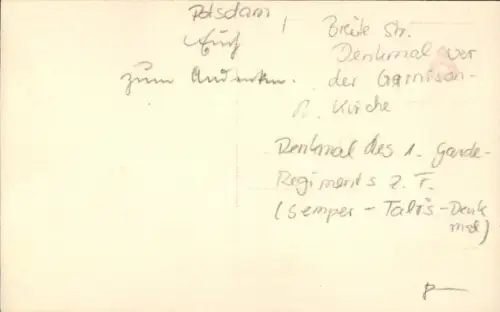 Potsdam
Euch
zum Andenken.
Breite Str.
Denkmal vor
der Garnison-
Kirche
Denkmal des 1. Garde-
Regiments z. F.
(Semper - Talis - Denk
mal)